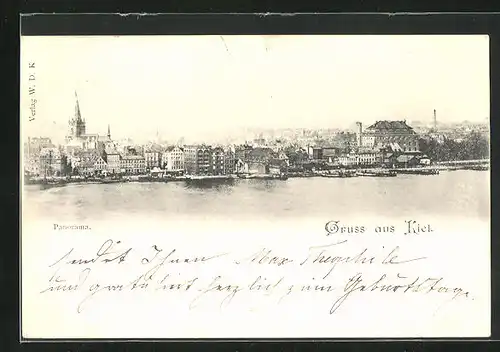 Verlag W. D. K
Panorama.
Gruss aus Kiel.
sendet Ihnen Max Theophile
und gratuliert herzlich zum Geburtstage.